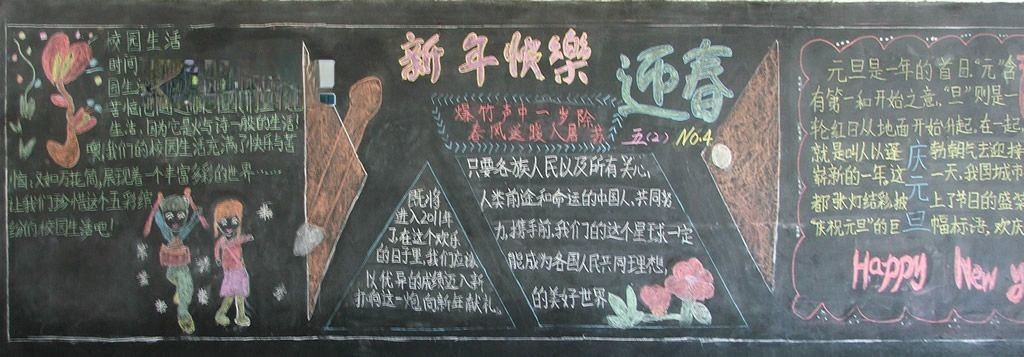 校园生活
时间
园生
苦恼
生活，因为它是火与诗一般的生活！
噢，我们的校园生活充满了快乐与苦
恼，又如万花筒，展现着一个丰富多彩的世界……
让我们珍惜这个五彩缤
纷的校园生活吧！
新年快樂
迎春
爆竹声中一岁除
春风送暖入屠苏
五（2） No.4
既将
进入2011年
了在这个欢乐
的日子里，我们应该
以优异的成绩迈入新
打响这一炮，向新年献礼。
只要各族人民以及所有关心
人类前途和命运的中国人，共同努
力，携手前，我们的这个星球一定
能成为各国人民共同理想，
的美好世界
元旦是一年的首日，“元”含
有第一和开始之意，“旦”则是一
轮红日从地面开始升起，在一起，
就是叫人以蓬勃朝气迎接
崭新的一年，这一天，我国城市
都张灯结彩，披上了节日的盛装
“庆祝元旦”的巨幅标语，欢庆
庆元旦
Happy New y